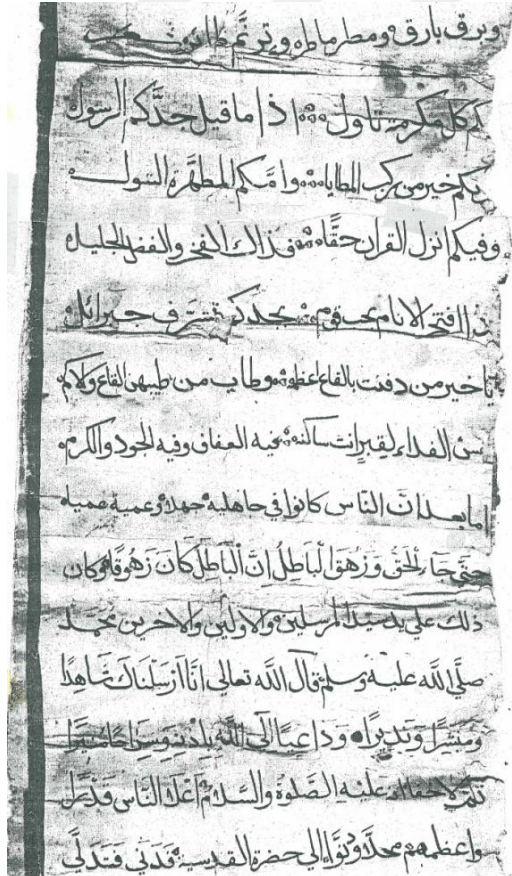 وبرق بارق ومطر ماطره وترنم طائر
لكم كل مكرمة تاول اذا ما قيل جدكم الرسول
بكم خير من ركب المطايا وامكم المطهرة البتول
وفيكم انزل القران حقا فذاك الفخر والفضل الجليل
اذا افتخر الانام بمجد قوم بجدكم تشرف جبرائل
يا خير من دفنت بالقاع اعظمه وطاب من طيبهن القاع والاكم
نفسي الفداء لقبر انت ساكنه فيه العفاف وفيه الجود والكرم
اما بعد ان الناس كانوا في جاهلية جهلاء وعمية عمياء
حتى جاء الحق وزهق الباطل ان الباطل كان زهوقا وكان
ذلك على يد سيد المرسلين والاولين والاخرين محمد
صلى الله عليه وسلم قال الله تعالى انا ارسلناك شاهدا
ومبشرا ونذيرا وداعيا الى الله باذنه وسراجا منيرا
عليه الصلوة والسلام اعلا الناس قدرا
واعظمهم محلا ودنوا الى حضرة القدسية فدنى فتدلى